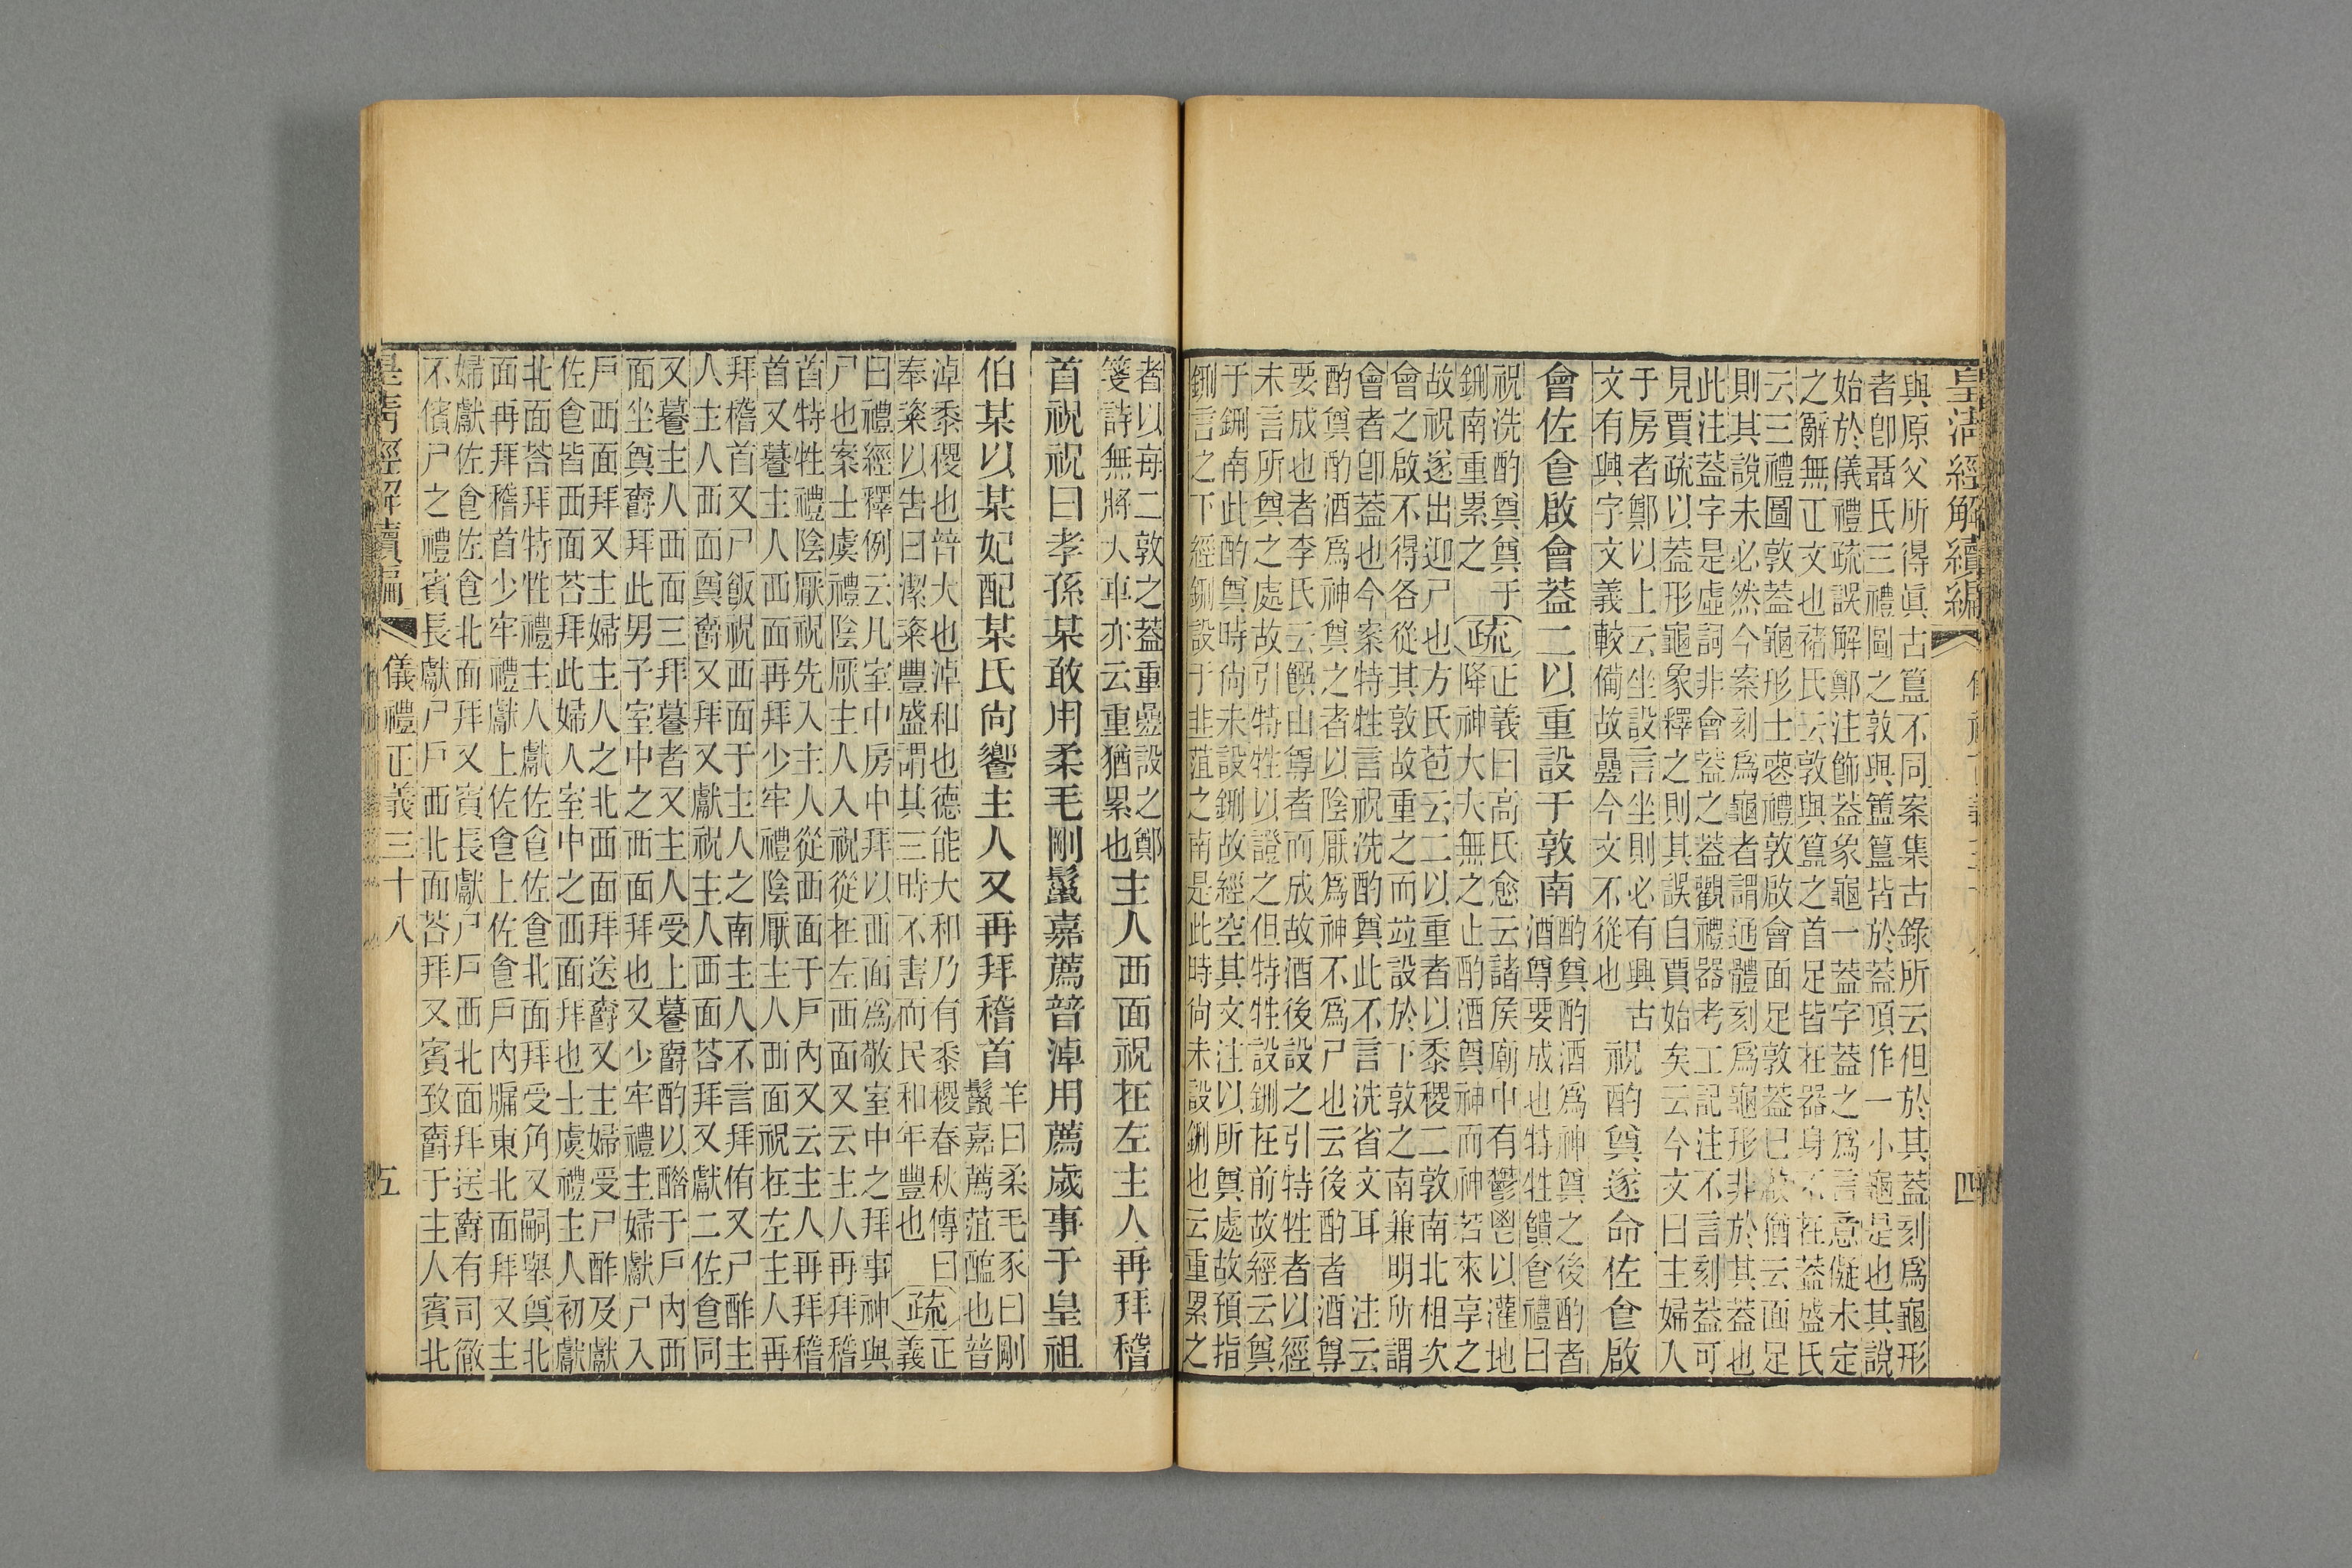 皇清經解續編
四
與原父所得眞古簋不同案集古錄所云但於其蓋刻爲龜形
者卽聶氏三禮圖之敦與簠簋皆於蓋頂作一小龜是也其說
始於儀禮疏誤解鄭注飾蓋象龜一蓋字蓋之爲言意儗未定
之辭無正文也褚氏云敦與簋之首足皆在器身不在蓋盛氏
云三禮圖敦蓋龜形士䘮禮敦啟會面足敦蓋已啟猶云面足
則其說未必然今案刻爲龜者謂通體刻爲龜形非於其蓋也
此注蓋字是虛詞非會蓋之蓋觀禮器考工記注不言刻蓋可
見賈疏以蓋形龜象釋之則其誤自賈始矣云今文曰主婦人
于房者鄭以上云坐設言坐則必有興古
文有興字文義較備故疊今文不從也
祝酌奠遂命佐食啟
會佐食啟會蓋二以重設于敦南
酌奠酌酒爲神奠之後酌者
酒尊要成也特牲饋食禮曰
祝洗酌奠奠于
鉶南重累之
疏
正義曰高氏愈云諸侯廟中有鬱鬯以灌地
降神大夫無之止酌酒奠神而神若來享之
故祝遂出迎尸也方氏苞云二以重者以黍稷二敦南北相次
會之啟不得各從其敦故重之而竝設於下敦之南兼明所謂
會者卽蓋也今案特牲言祝洗酌奠此不言洗省文耳注云
酌奠酌酒爲神奠之者以陰厭爲神不爲尸也云後酌者酒尊
要成也者李氏云饌山尊者而成故酒後設之引特牲者以經
未言所奠之處故引特牲以證之但特牲設鉶在前故經云奠
于鉶南此酌奠時尙未設鉶故經空其文注以所奠處故預指
鉶言之下經鉶設于韭菹之南是此時尙未設鉶也云重累之
者以每二敦之蓋重疊設之鄭
箋詩無將大車亦云重猶累也
主人西面祝在左主人再拜稽
首祝祝曰孝孫某敢用柔毛剛鬣嘉薦普淖用薦歲事于皇祖
伯某以某妃配某氏尙饗主人又再拜稽首
羊曰柔毛豕曰剛
鬣嘉薦菹醢也普
淖黍稷也普大也淖和也德能大和乃有黍稷春秋傳曰
奉粢以告曰潔粢豐盛謂其三時不害而民和年豐也
疏
正
義
曰禮經釋例云凡室中房中拜以西面爲敬室中之拜事神與
尸也案士虞禮陰厭主人入祝從在左西面又云主人再拜稽
首特牲禮陰厭祝先入主人從西面于戶內又云主人再拜稽
首又㬅主人西面再拜少牢禮陰厭主人西面祝在左主人再
拜稽首又尸飯祝西面于主人之南主人不言拜侑又尸酢主
人主人西面奠爵又拜又獻祝主人西面荅拜又獻二佐食同
又㬅主人西面三拜㬅者又主人受上㬅爵酌以醋于戶內西
面坐奠爵拜此男子室中之西面拜也又少牢禮主婦獻尸入
戶西面拜又主婦主人之北西面拜送爵又主婦受尸酢及獻
佐食皆西面荅拜此婦人室中之西面拜也士虞禮主人初獻
北面荅拜特牲禮主人獻佐食佐食北面拜受角又嗣舉奠北
面再拜稽首少牢禮獻上佐食上佐食戶內牖東北面拜又主
婦獻佐食佐食北面拜又賓長獻尸尸西北面拜送爵有司徹
不儐尸之禮賓長獻尸尸西北面荅拜又賓致爵于主人賓北
皇清經解續編
儀禮正義三十八
五